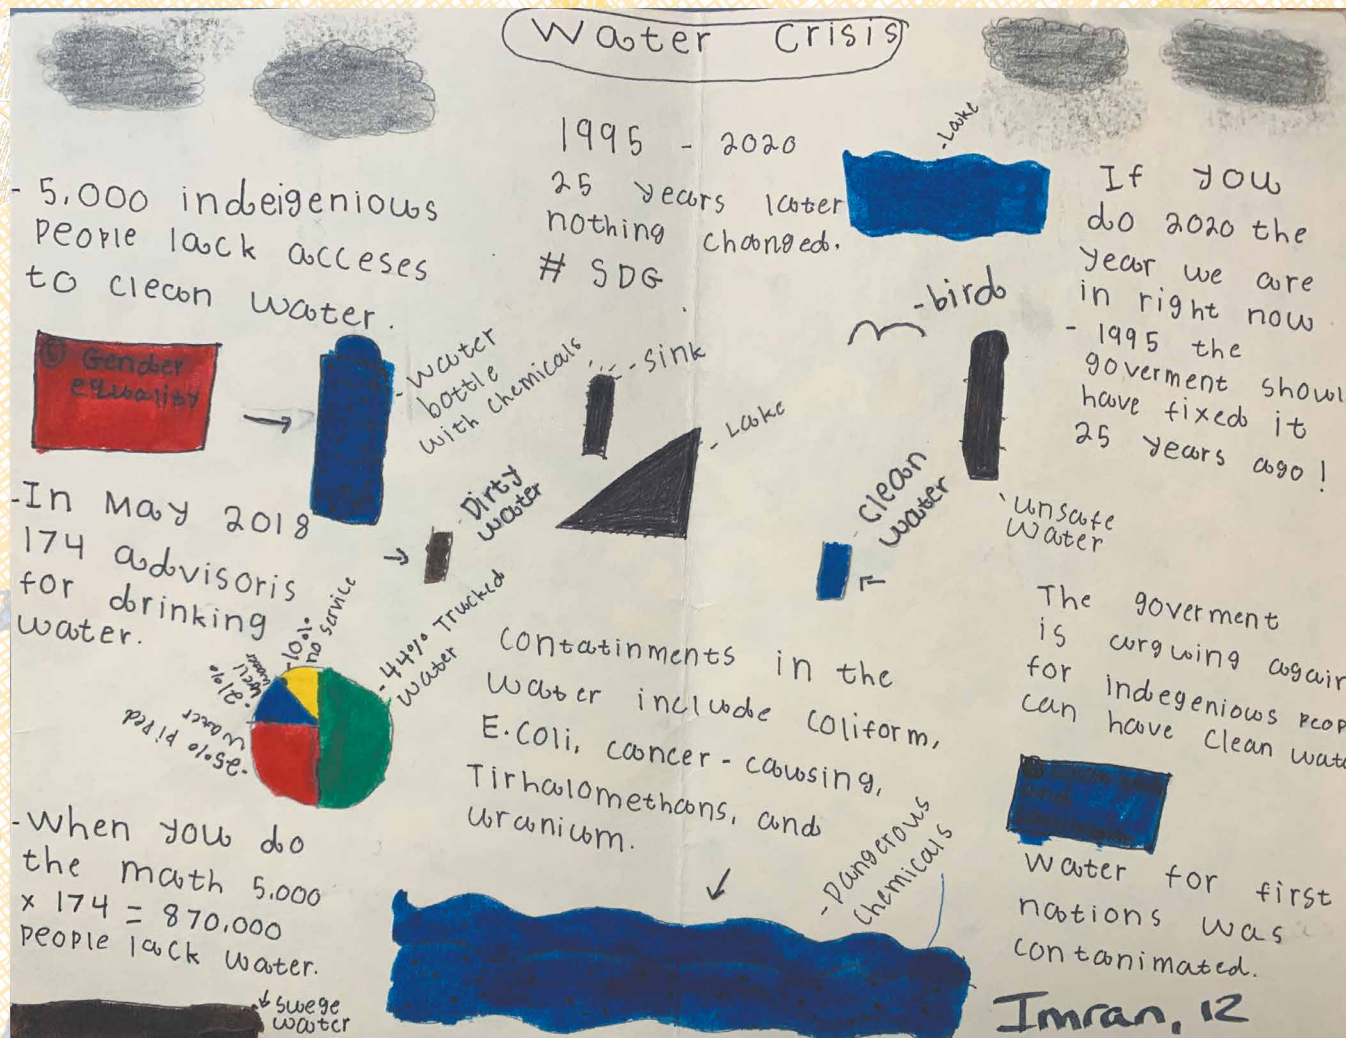 Water Crisis
- 5,000 indeigenious
people lack acceses
to clean water.
5 Gender
equality
- water
bottle
with chemicals
-In May 2018
174 advisoris
for drinking
water.
-10%
no service
-44% Trucked
water
-21%
well
water
-25% piped
water
-When you do
the math 5,000
x 174 = 870,000
people lack water.
swege
water
1995 - 2020
25 years later
nothing changed.
# SDG
- sink
- Lake
- Dirty
water
contatinments in the
water include coliform,
E.coli, cancer-causing,
Tirhalomethans, and
uranium.
-Dangerous
chemicals
-Lake
-bird
- clean
water
unsafe
water
If you
do 2020 the
year we are
in right now
- 1995 the
goverment shoul
have fixed it
25 years ago!
The goverment
is arguing again
for indegenious peop
can have clean wat
water for first
nations was
contanimated.
Imran, 12